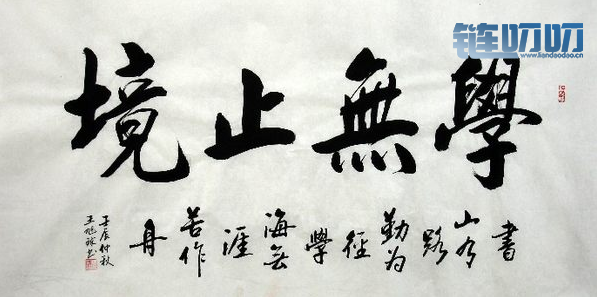 链叨叨
www.liandaodao.cn
學無止境
書
山有
路
勤为
徑
學
海無
涯
苦作
舟
壬辰仲秋